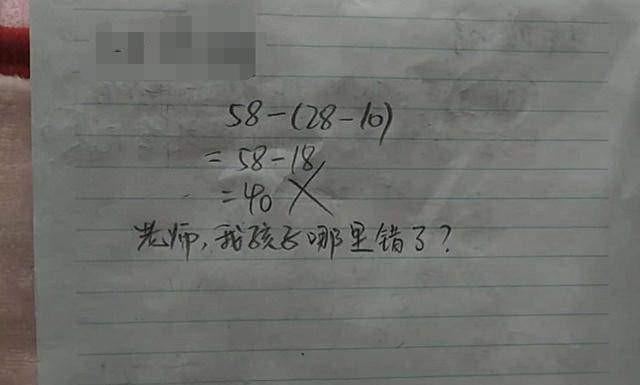 58-(28-10)
=58-18
=40 ×
老师,我孩子哪里错了?